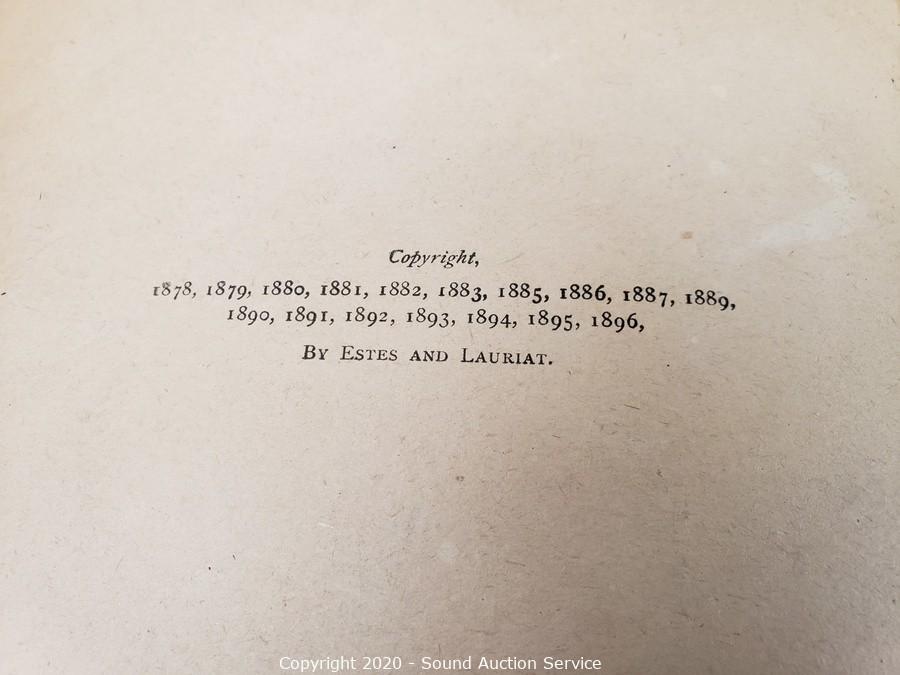 Copyright,
1878, 1879, 1880, 1881, 1882, 1883, 1885, 1886, 1887, 1889,
1890, 1891, 1892, 1893, 1894, 1895, 1896,
By Estes and Lauriat.
Copyright 2020 - Sound Auction Service